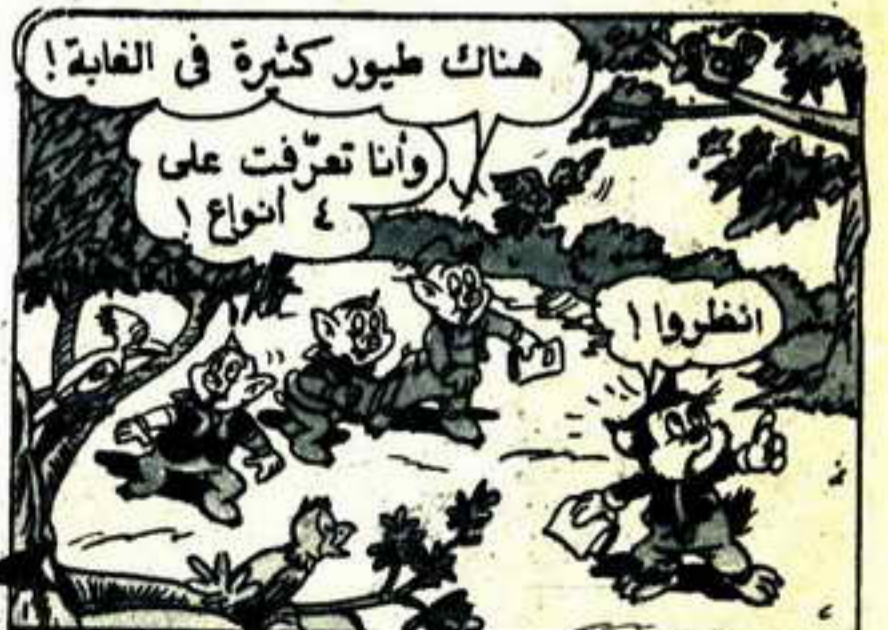 هناك طيور كثيرة فى الغابة!
وأنا تعرّفت على
٤ أنواع!
انظروا!